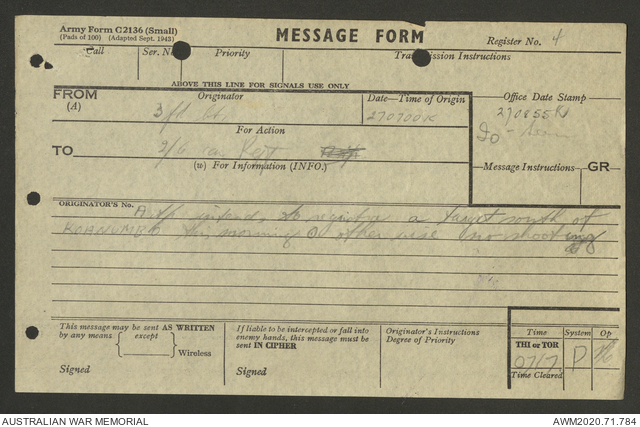 Army Form C2136 (Small)
(Pads of 100) (Adapted Sept. 1943)
MESSAGE FORM
Register No. 4
Call
Ser. No.
Priority
Transmission Instructions
ABOVE THIS LINE FOR SIGNALS USE ONLY
FROM
(A)
Originator
Date—Time of Origin
270700K
Office Date Stamp
270855K
For Action
TO
2/6
(w) For Information (INFO.)
Message Instructions
GR
ORIGINATOR'S No.
intends to register a target south of
this morning otherwise no shooting
This message may be sent AS WRITTEN
by any means except
Wireless
Signed
If liable to be intercepted or fall into
enemy hands, this message must be
sent IN CIPHER
Signed
Originator's Instructions
Degree of Priority
Time
System
Op
THI or TOR
0717
D
Time Cleared
AUSTRALIAN WAR MEMORIAL
AWM2020.71.784